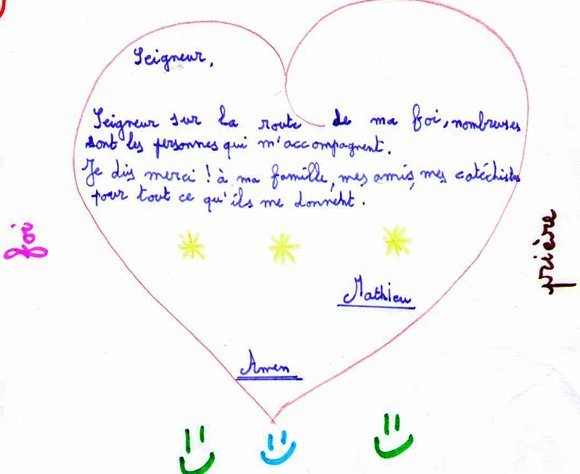 Seigneur,
Seigneur sur la route de ma foi, nombreuses
sont les personnes qui m'accompagnent.
Je dis merci ! à ma famille, mes amis, mes catéchistes
pour tout ce qu'ils me donnent.
Mathieu
Amen
joi
prière